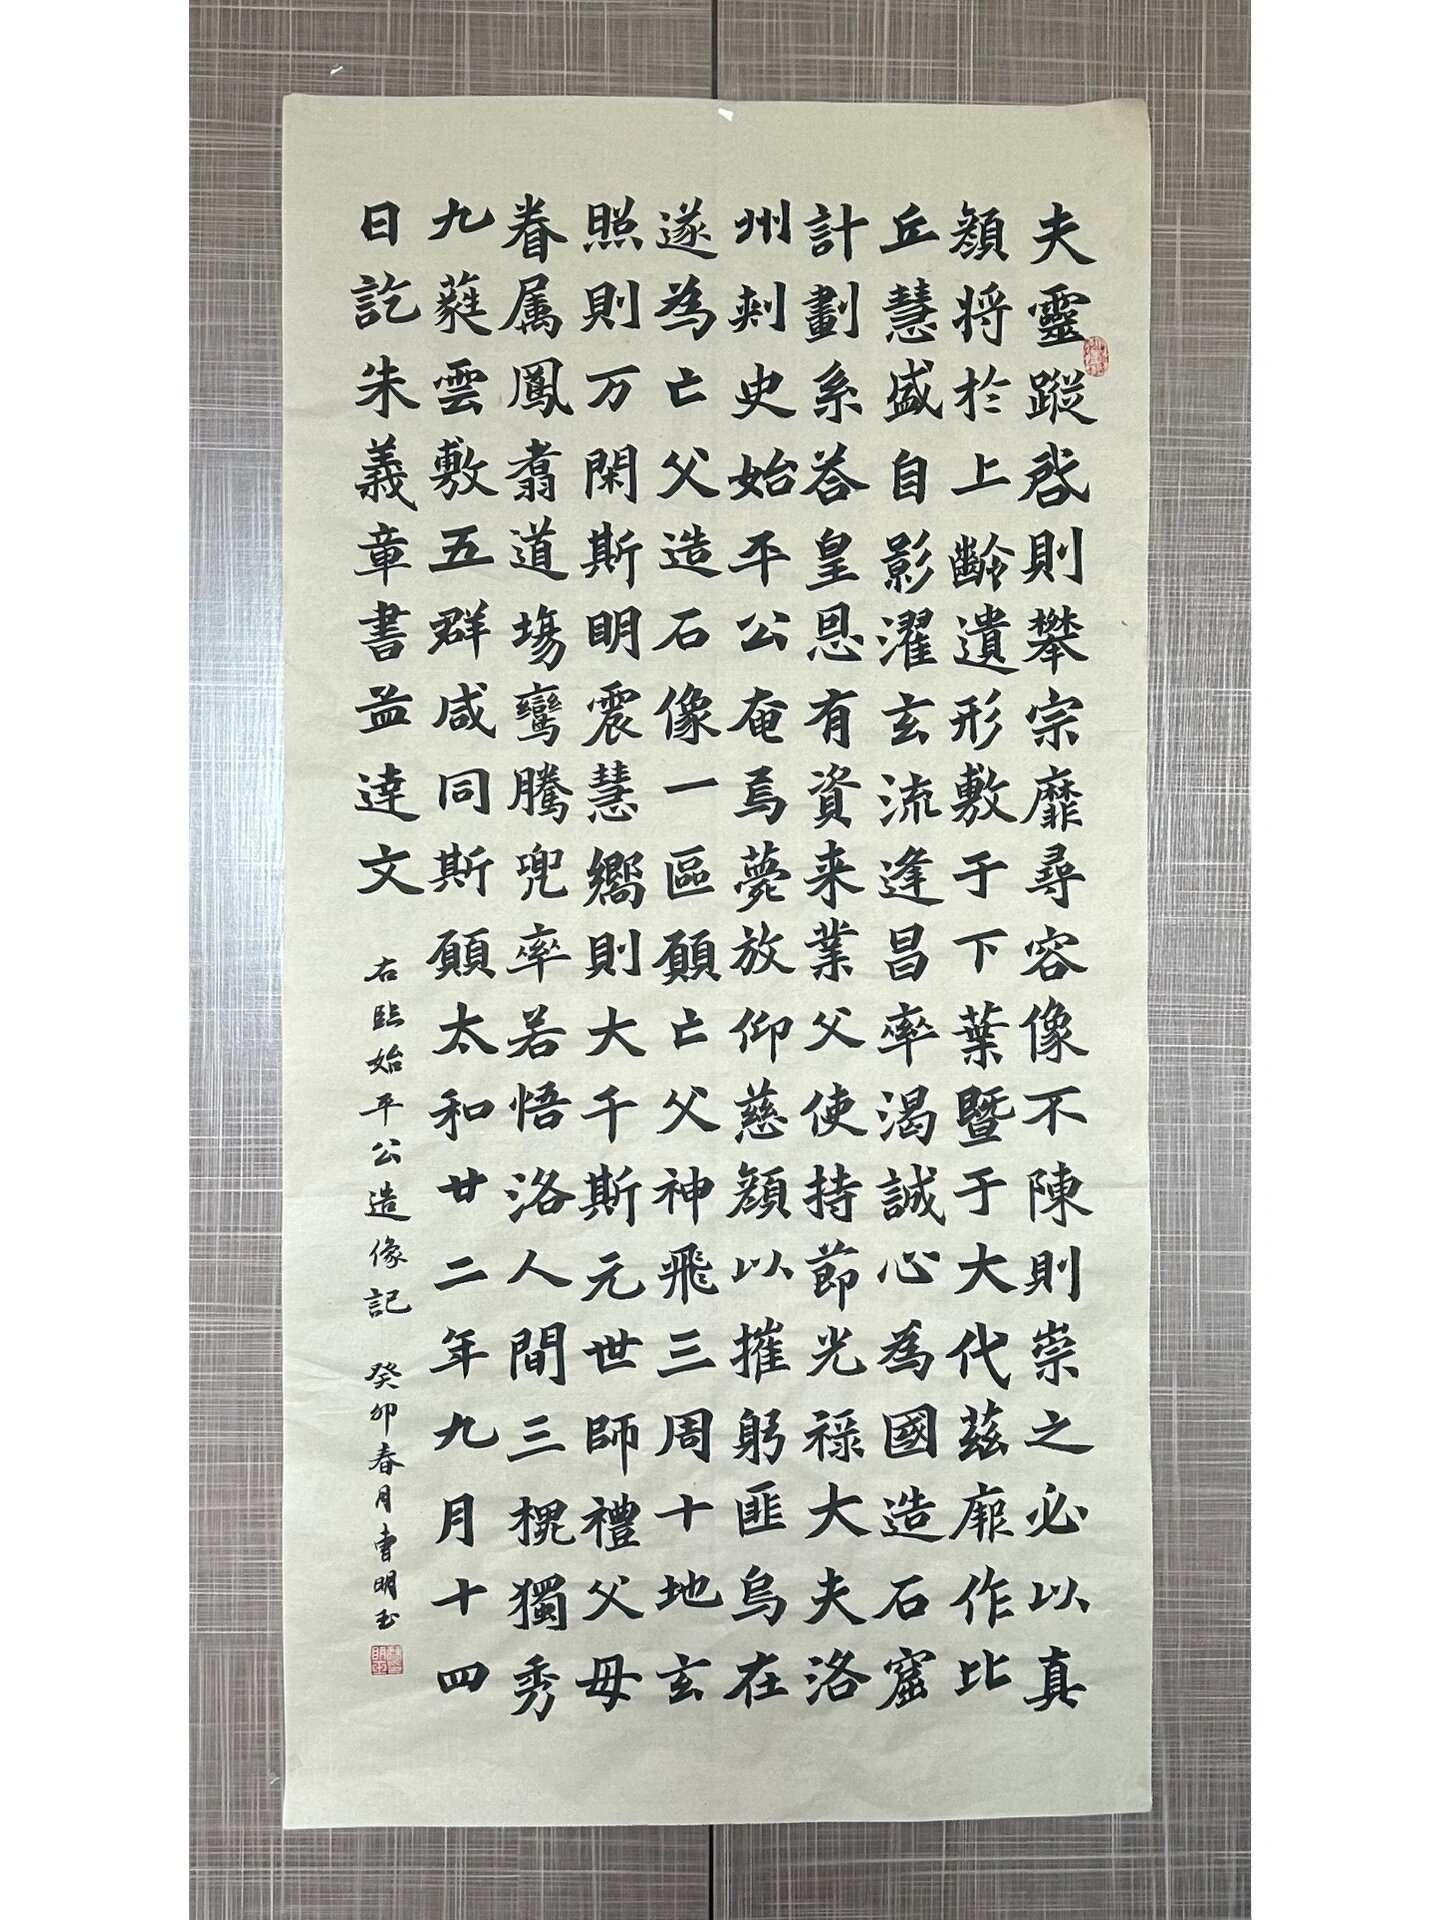 夫靈蹤啓則攀宗靡尋容像不陳則崇之必以真
顏将於上齡遺形敷于下葉暨于大代茲廓作比
丘慧盛自影濯玄流逢昌率渴誠心為國造石窟
計劃系荅皇恩有資来業父使持節光禄大夫洛
州刺史始平公奄焉薨放仰慈顏以摧躬匪烏在
遂為亡父造石像一區願亡父神飛三周十地玄
照則万閑斯明震慧嚮則大千斯元世師禮父母
眷属鳳翥道場鸞騰兜率若悟洛人間三槐獨秀
九蕤雲敷五群咸同斯願太和廿二年九月十四
日訖朱義章書孟達文
右臨始平公造像記 癸卯春月曹明玉